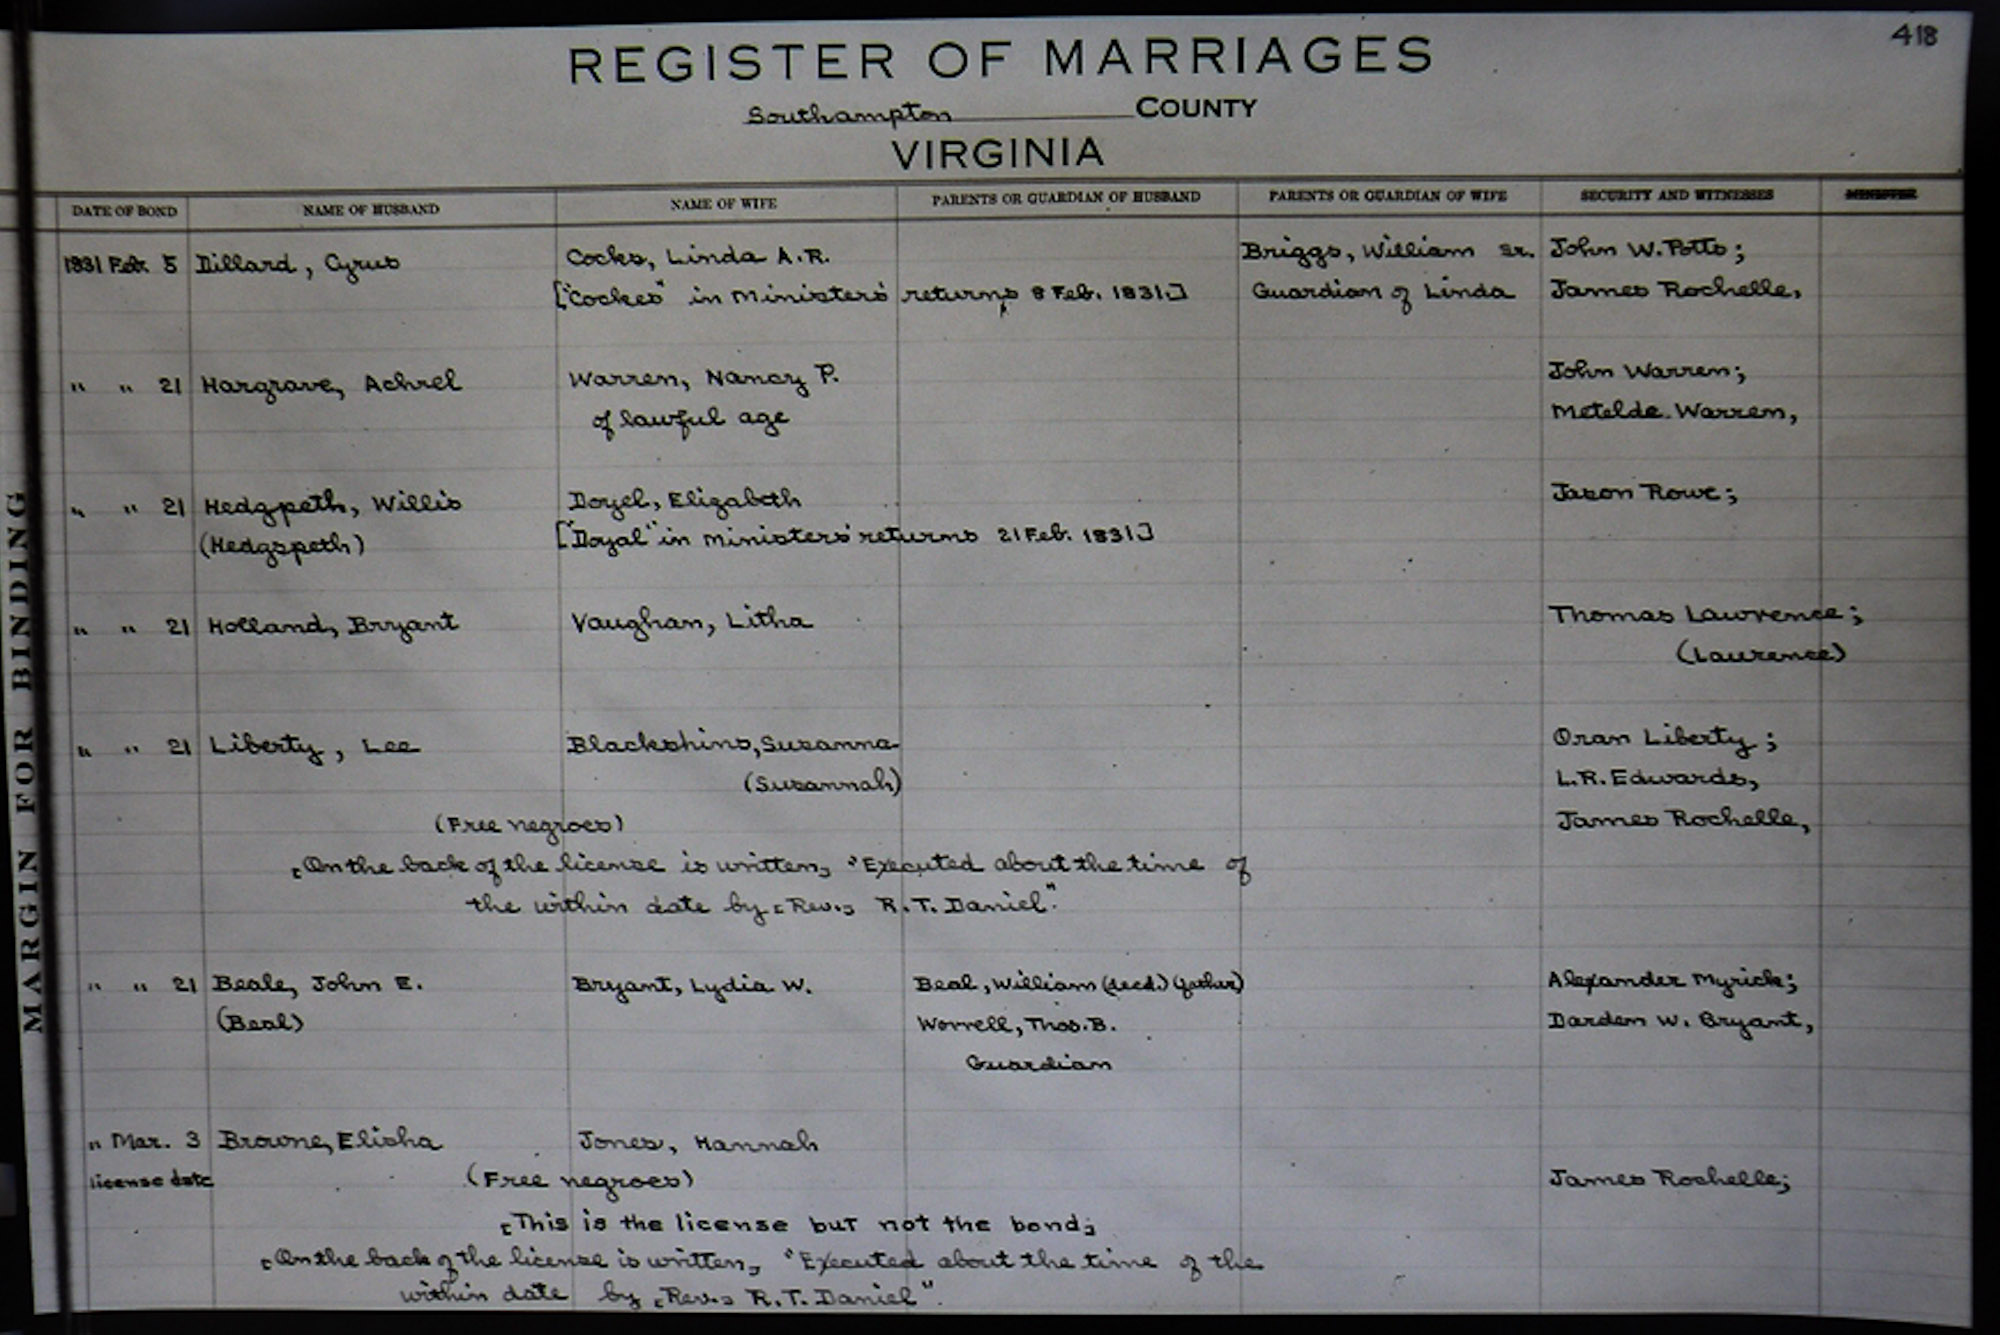 418
REGISTER OF MARRIAGES
Southampton COUNTY
VIRGINIA
MARGIN FOR BINDING
DATE OF BOND NAME OF HUSBAND NAME OF WIFE PARENTS OR GUARDIAN OF HUSBAND PARENTS OR GUARDIAN OF WIFE SECURITY AND WITNESSES MINISTER
1831 Feb. 5 Dillard, Cyrus Cocks, Linda A.R. Briggs, William Sr. John W. Potts;
["Cockes" in Ministers' returns 8 Feb. 1831.] Guardian of Linda James Rochelle,
" " 21 Hargrave, Achrel Warren, Nancy P. John Warren;
of lawful age Metelde Warren,
" " 21 Hedgpeth, Willis Doyel, Elizabeth Jason Rowe;
(Hedgspeth) ["Doyal" in Ministers' returns 21 Feb. 1831]
" " 21 Holland, Bryant Vaughan, Litha Thomas Lawrence;
(Laurence)
" " 21 Liberty, Lee Blackshins, Susanna Oran Liberty;
(Susannah) L.R. Edwards,
(Free negroes) James Rochelle,
[On the back of the license is written] "Executed about the time of
the within date by [Rev.] R.T. Daniel".
" " 21 Beale, John E. Bryant, Lydia W. Beal, William (decd.) (father) Alexander Myrick;
(Beal) Worrell, Thos. B. Darden W. Bryant,
Guardian
" Mar. 3 Browne, Elisha Jones, Hannah
license date (Free negroes) James Rochelle;
[This is the license but not the bond]
[On the back of the license is written] "Executed about the time of the
within date by [Rev.] R.T. Daniel".